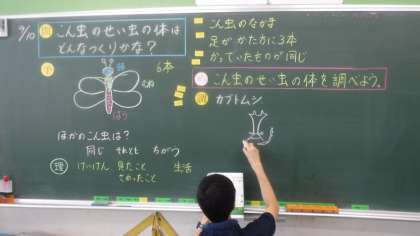 9/10
問 こん虫のせい虫の体は
どんなつくりかな?
予
頭
6本
むね
はら
ほかのこん虫は?
同じ それとも ちがう
理 けいけん 見たこと 生活
さわったこと
こん虫のなかま
足が かた方に3本
かっていたものが同じ
こん虫のせい虫の体を調べよう。
カブトムシ